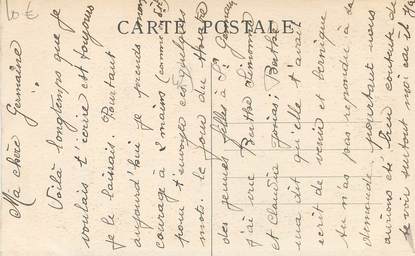 CARTE POSTALE
Ma chère Germaine
Voilà longtemps que je
voulais t'écrire et toujours
je le laissais. Pourtant
aujourd'hui je prends mon
courage à 2 mains (comme
pour t'envoyer ces quelques
mots. le jour du
des jeunes filles à St
j'ai vue Berthe
et Claudia Berthe
m'a dit qu'elle t'avait
écrit de venir et
tu n'as pas répondu à sa
demande pourtant nous
aurions été bien contente de
te voir surtout moi